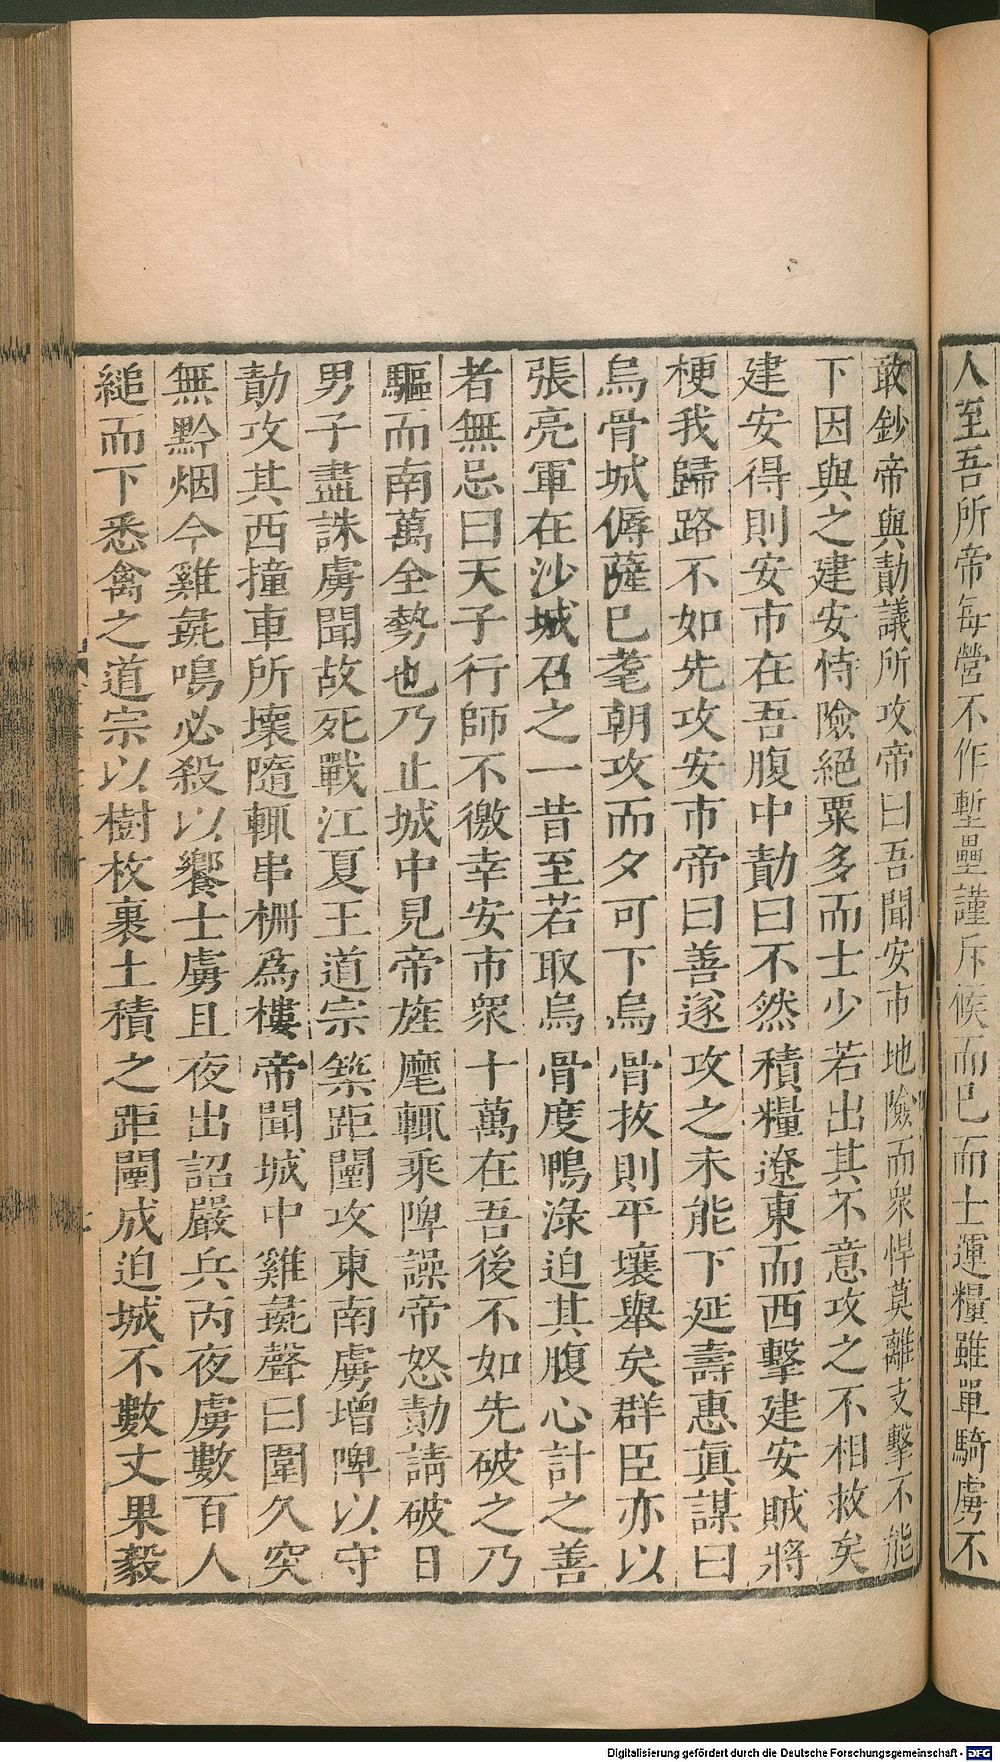 人至吾所帝每營不作塹壘謹斥候而已而士運糧雖單騎虜不
敢鈔帝與勣議所攻帝曰吾聞安市地險而衆悍莫離支擊不能
下因與之建安恃險絕粟多而士少若出其不意攻之不相救矣
建安得則安市在吾腹中勣曰不然積糧遼東而西擊建安賊將
梗我歸路不如先攻安市帝曰善遂攻之未能下延壽惠眞謀曰
烏骨城傉薩已耄朝攻而夕可下烏骨拔則平壤舉矣群臣亦以
張亮軍在沙城召之一昔至若取烏骨度鴨淥迫其腹心計之善
者無忌曰天子行師不徼幸安市衆十萬在吾後不如先破之乃
驅而南萬全勢也乃止城中見帝旌麾輒乘陴譟帝怒勣請破日
男子盡誅虜聞故死戰江夏王道宗築距闉攻東南虜增陴以守
勣攻其西撞車所壞隨輒串柵爲樓帝聞城中雞彘聲曰圍久突
無黔烟今雞彘鳴必殺以饗士虜且夜出詔嚴兵丙夜虜數百人
縋而下悉禽之道宗以樹枚裹土積之距闉成迫城不數丈果毅
Digitalisierung gefördert durch die Deutsche Forschungsgemeinschaft - DFG